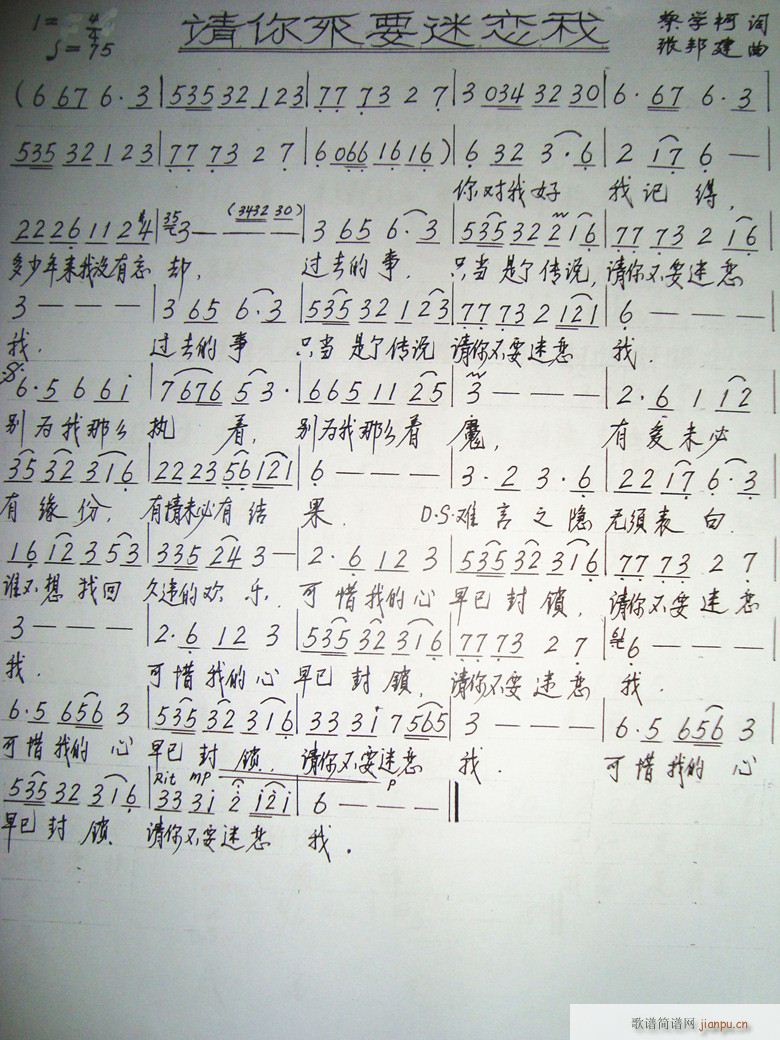 1= 4/4
♩=75
請你不要迷恋我
蔡学柯 词
张邦建 曲
(6 67 6·3 | 535 32 123 | 77 73 2 7 | 3 034 32 30 | 6·67 6·3
535 32 1 2 3 | 77 73 2 7 | 6 066 1616) | 6 32 3·6 | 2 17 6 —
你对我好 我记得,
2226 112 4 | 35 3 — — (3432 30) | 3 65 6·3 | 535 32 216 | 77 73 2 16
多少年来我没有忘却, 过去的事, 只当是个传说,请你不要迷恋
3 — — — | 3 65 6·3 | 535 32 1 23 | 77 73 2 121 | 6 — — —
我. 过去的事 只当是个传说 请你不要迷恋 我.
6·5 6 6i | 7676 5 3· | 665 11 25 | 3 — — — | 2·6 1 12
别为我那么执着, 别为我那么着魔, 有爱未必
35 32 316 | 22 23 56 121 | 6 — — — | 3·2 3·6 | 22 17 6·3
有缘份, 有情未必有结果. D.S.难言之隐 无须表白.
16 12 3 53 | 335 24 3 — | 2·6 12 3 | 535 32 316 | 77 73 2 7
谁不想找回 久违的欢乐. 可惜我的心 早已封锁, 请你不要迷恋
3 — — — | 2·6 12 3 | 535 32 316 | 77 73 2 7 | 6 — — —
我. 可惜我的心 早已封锁, 请你不要迷恋 我.
6·5 656 3 | 535 32 316 | 33 3i 7 565 | 3 — — — | 6·5 656 3
可惜我的心 早已封锁, 请你不要迷恋 我. 可惜我的心
Rit mp p
535 32 316 | 33 3i 2 i2i | 6 — — —
早已封锁 请你不要迷恋 我.
歌谱简谱网 jianpu.cn